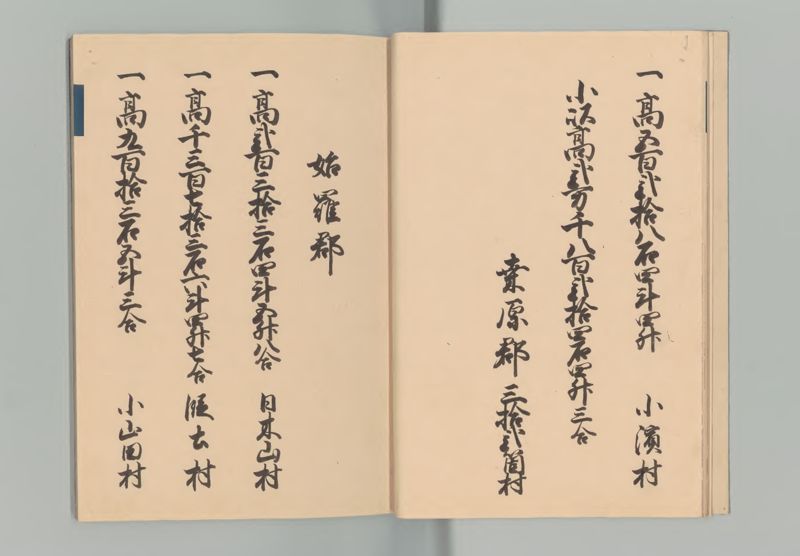 一高五百弐拾八石四斗四升 小濱村
小以高弐万千八百弐拾四石四升三合
桒原郡 三拾弐箇村
始羅郡
一高弐百三拾三石四斗五升八合 日木山村
一高千三百七拾三石六斗四升七合 段土村
一高九百拾三石五斗三合 小山田村